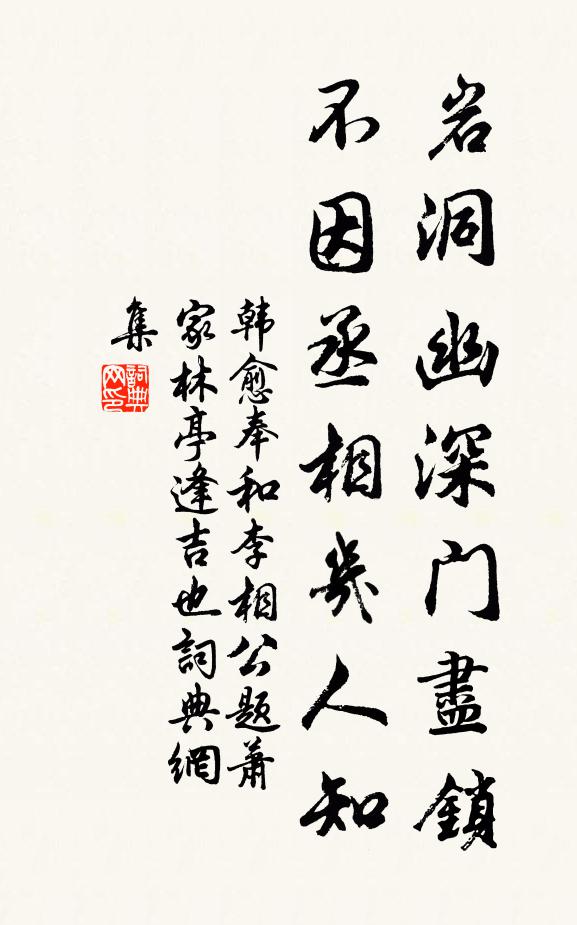 岩洞幽深門盡鎖
不因丞相幾人知
韩愈奉和李相公题蕭
家林亭逢吉也詞典網
集
詞典
网印